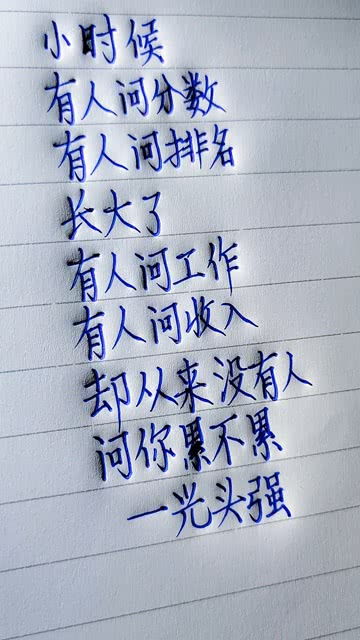 小时候
有人问分数
有人问排名
长大了
有人问工作
有人问收入
却从来没有人
问你累不累
一光头强